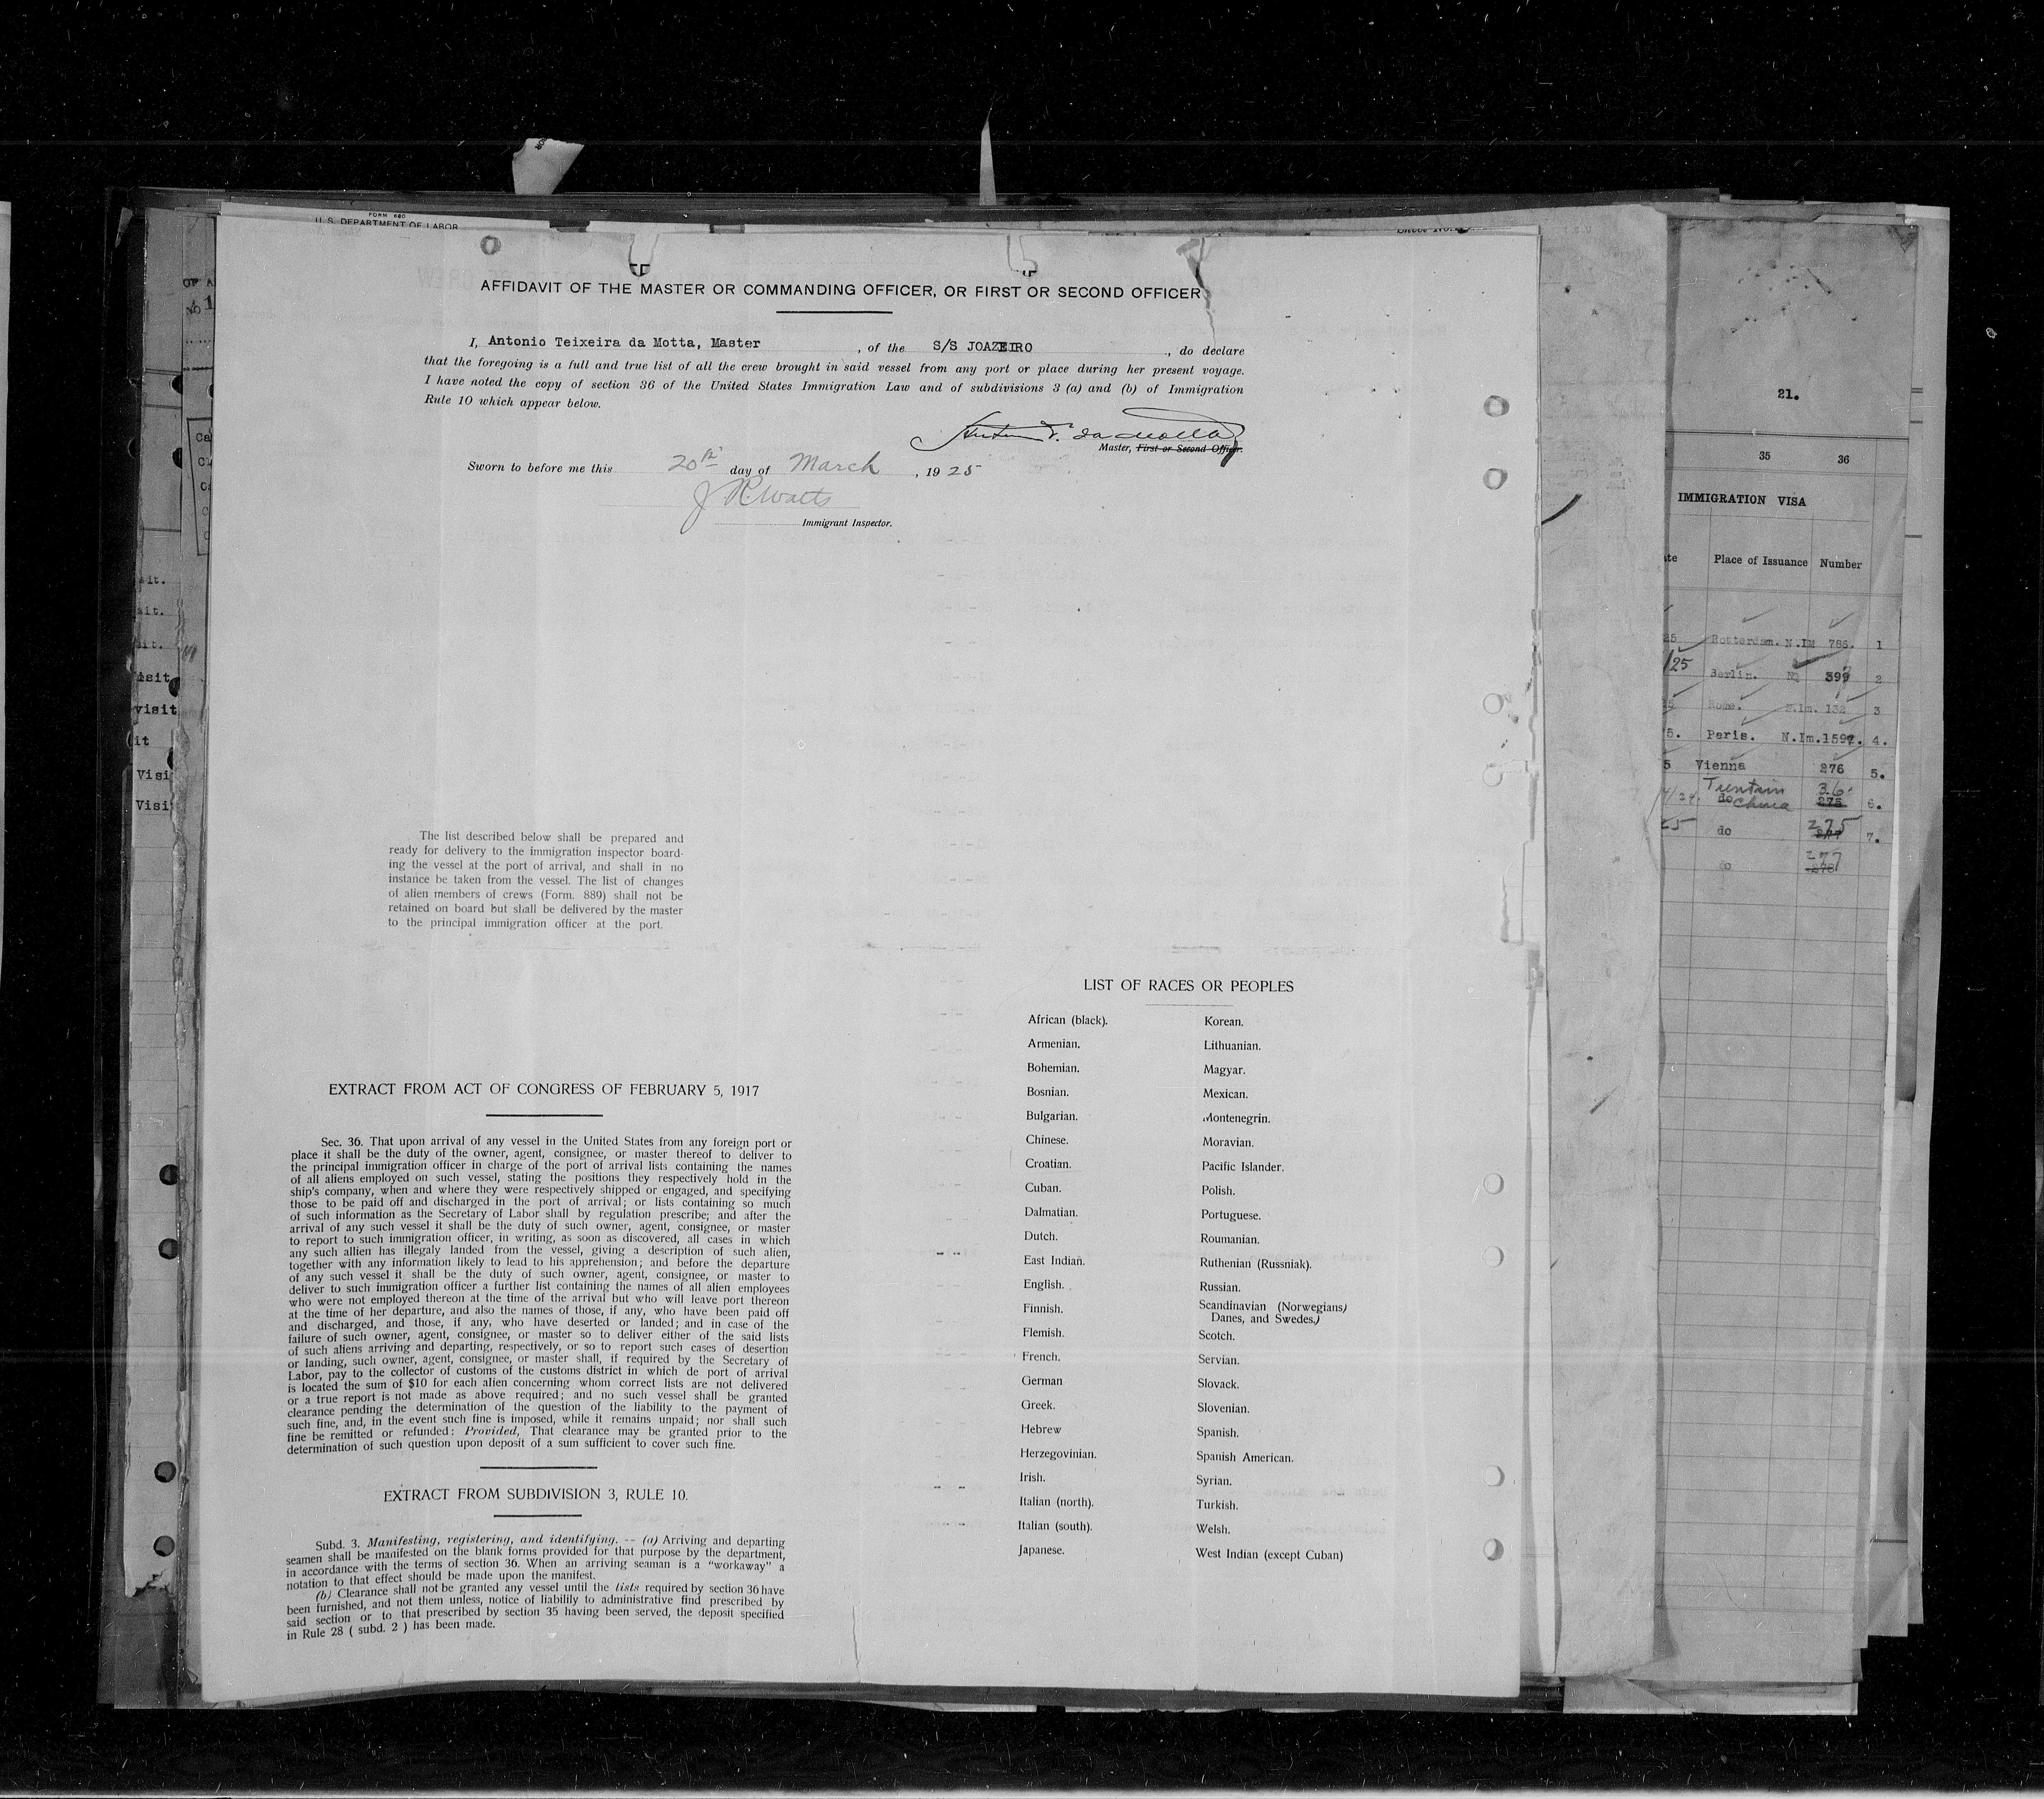 FORM 680
U. S. DEPARTMENT OF LABOR
AFFIDAVIT OF THE MASTER OR COMMANDING OFFICER, OR FIRST OR SECOND OFFICER
I, Antonio Teixeira da Motta, Master , of the S/S JOAZEIRO , do declare
that the foregoing is a full and true list of all the crew brought in said vessel from any port or place during her present voyage.
I have noted the copy of section 36 of the United States Immigration Law and of subdivisions 3 (a) and (b) of Immigration
Rule 10 which appear below.
Master, First or Second Officer.
Sworn to before me this 20th day of March , 1925
J R Watts
Immigrant Inspector.
The list described below shall be prepared and
ready for delivery to the immigration inspector board-
ing the vessel at the port of arrival, and shall in no
instance be taken from the vessel. The list of changes
of alien members of crews (Form. 889) shall not be
retained on board but shall be delivered by the master
to the principal immigration officer at the port.
EXTRACT FROM ACT OF CONGRESS OF FEBRUARY 5, 1917
Sec. 36. That upon arrival of any vessel in the United States from any foreign port or
place it shall be the duty of the owner, agent, consignee, or master thereof to deliver to
the principal immigration officer in charge of the port of arrival lists containing the names
of all aliens employed on such vessel, stating the positions they respectively hold in the
ship's company, when and where they were respectively shipped or engaged, and specifying
those to be paid off and discharged in the port of arrival; or lists containing so much
of such information as the Secretary of Labor shall by regulation prescribe; and after the
arrival of any such vessel it shall be the duty of such owner, agent, consignee, or master
to report to such immigration officer, in writing, as soon as discovered, all cases in which
any such allien has illegaly landed from the vessel, giving a description of such alien,
together with any information likely to lead to his apprehension; and before the departure
of any such vessel it shall be the duty of such owner, agent, consignee, or master to
deliver to such immigration officer a further list containing the names of all alien employees
who were not employed thereon at the time of the arrival but who will leave port thereon
at the time of her departure, and also the names of those, if any, who have been paid off
and discharged, and those, if any, who have deserted or landed; and in case of the
failure of such owner, agent, consignee, or master so to deliver either of the said lists
of such aliens arriving and departing, respectively, or so to report such cases of desertion
or landing, such owner, agent, consignee, or master shall, if required by the Secretary of
Labor, pay to the collector of customs of the customs district in which de port of arrival
is located the sum of $10 for each alien concerning whom correct lists are not delivered
or a true report is not made as above required; and no such vessel shall be granted
clearance pending the determination of the question of the liability to the payment of
such fine, and, in the event such fine is imposed, while it remains unpaid; nor shall such
fine be remitted or refunded: Provided, That clearance may be granted prior to the
determination of such question upon deposit of a sum sufficient to cover such fine.
EXTRACT FROM SUBDIVISION 3, RULE 10.
Subd. 3. Manifesting, registering, and identifying. -- (a) Arriving and departing
seamen shall be manifested on the blank forms provided for that purpose by the department,
in accordance with the terms of section 36. When an arriving seaman is a "workaway" a
notation to that effect should be made upon the manifest.
(b) Clearance shall not be granted any vessel until the lists required by section 36 have
been furnished, and not them unless, notice of liabilily to administrative find prescribed by
said section or to that prescribed by section 35 having been served, the deposit specified
in Rule 28 ( subd. 2 ) has been made.
LIST OF RACES OR PEOPLES
African (black).
Armenian.
Bohemian.
Bosnian.
Bulgarian.
Chinese.
Croatian.
Cuban.
Dalmatian.
Dutch.
East Indian.
English.
Finnish.
Flemish.
French.
German
Greek.
Hebrew
Herzegovinian.
Irish.
Italian (north).
Italian (south).
Japanese.
Korean.
Lithuanian.
Magyar.
Mexican.
Montenegrin.
Moravian.
Pacific Islander.
Polish.
Portuguese.
Roumanian.
Ruthenian (Russniak).
Russian.
Scandinavian (Norwegians)
Danes, and Swedes.)
Scotch.
Servian.
Slovack.
Slovenian.
Spanish.
Spanish American.
Syrian.
Turkish.
Welsh.
West Indian (except Cuban)
21.
35 36
IMMIGRATION VISA
Place of Issuance Number
Rotterdam. N.IM 786. 1
/25 Berlin. 2
Rome. 132 3
5. Paris. N.Im. 4.
5 Vienna 276 5.
do China 36 275 6.
25 do 275 7.
do 277
visit
it
Visi
Visi